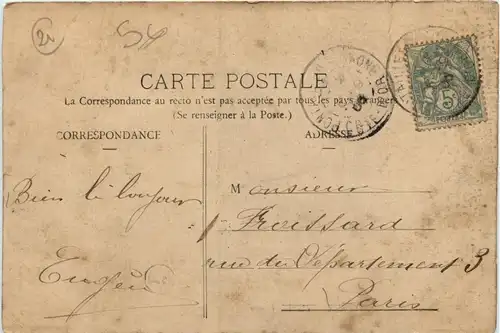 54
CARTE POSTALE
La Correspondance au recto n'est pas acceptée par tous les pays étrangers
(Se renseigner à la Poste.)
CORRESPONDANCE
ADRESSE
Bien le bonjour
Monsieur
Froissard
rue du Département 3
Paris